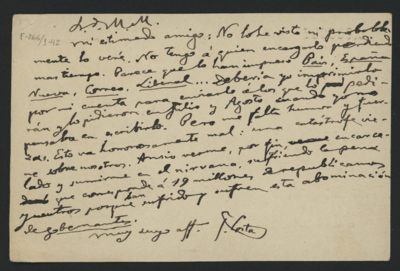 E-264/3-42
Sr. D. M. M.
mi estimado amigo. No lo he visto ni probable-
mente lo veré. No tengo á quien encargarlo perdiendo
mas tiempo. Parece que lo han impreso País, España
Nueva, Correo, Liberal... Debería yo imprimirlo
por mi cuenta para enviarlo á los que lo pedi-
rán y lo pidieron en Julio y Agosto cuando yo no
pensaba en escribirlo. Pero me falta humor y fuer-
zas. Esto va horrorosamente mal: una catástrofe vie-
ne sobre nosotros. Ansío verme, por fin, encarce-
lado y sumirme en el nirvana, sufriendo la pena
que corresponde á 19 millones de republicanos
y neutros porque han sufrido y sufren esta abominación
de gobernantes.
muy suyo aff. J. Costa